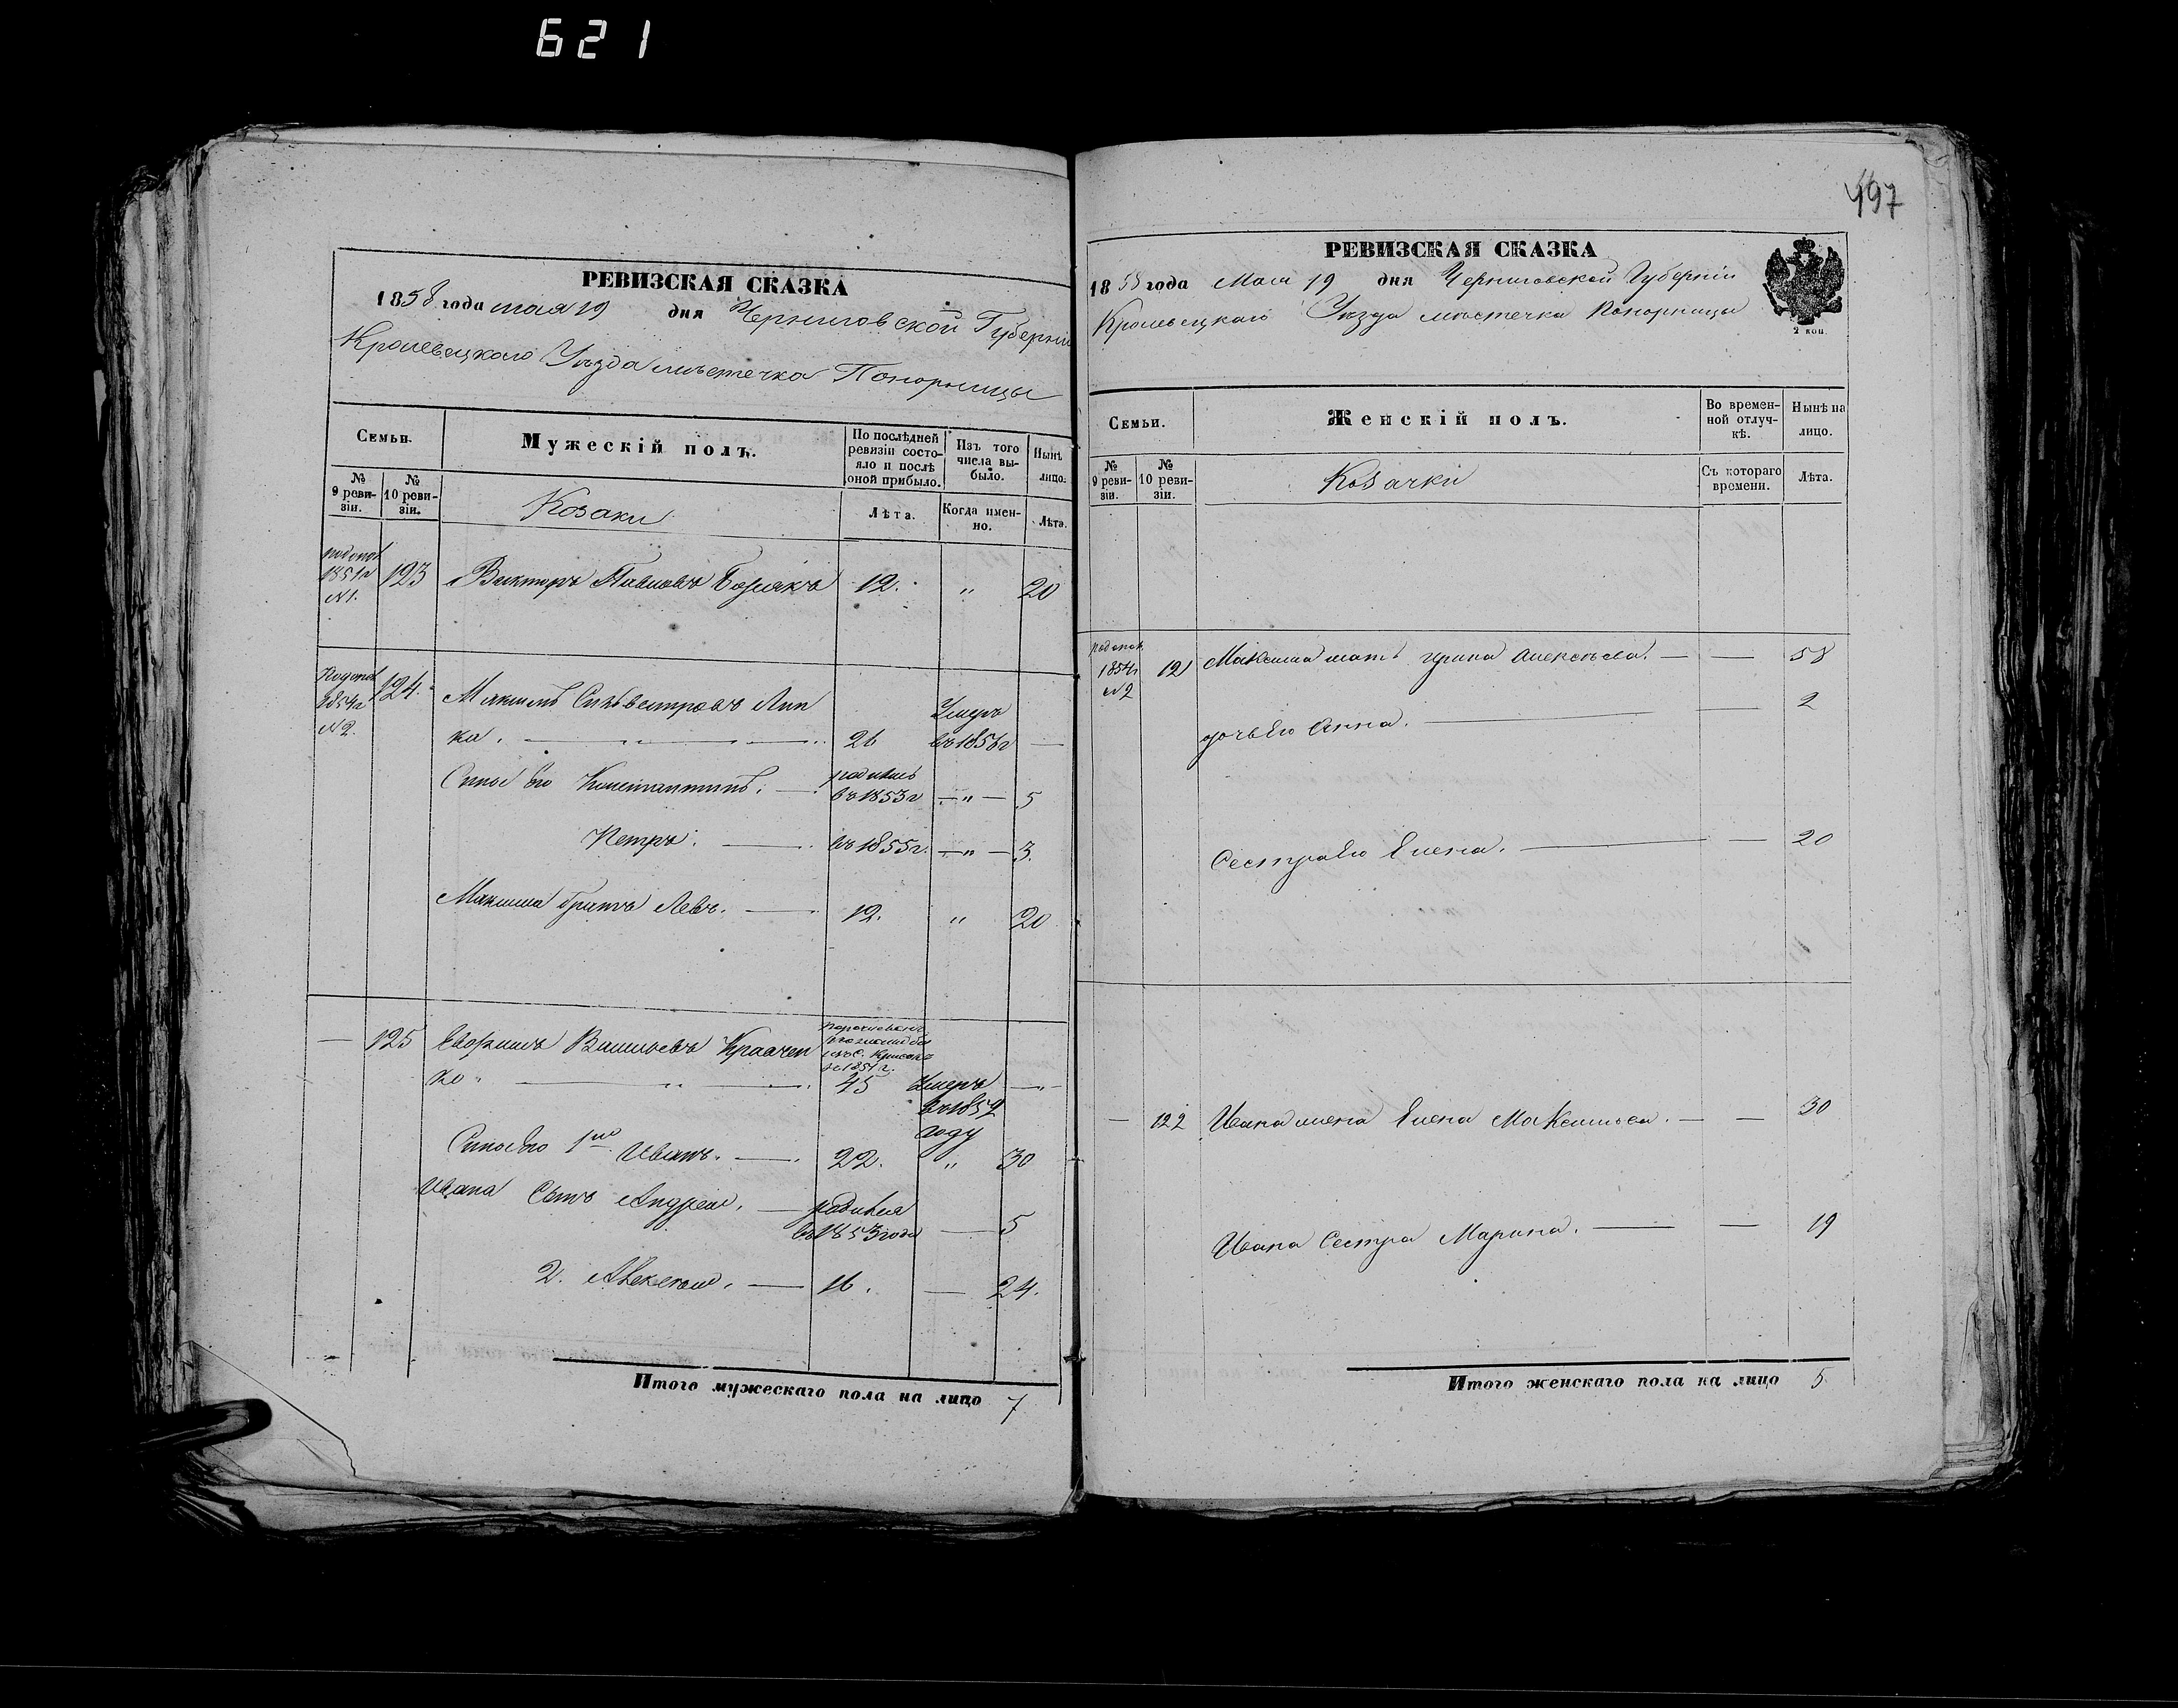 621
РЕВИЗСКАЯ СКАЗКА
1858 года мая 19 дня Черниговской Губерніи
Кролевецкаго Уѣзда мѣстечка Понорницы
Семьи.
Мужескій полъ.
По послѣдней ревизіи состояло и послѣ оной прибыло.
Изъ того числа выбыло.
Нынѣ лицо.
№ 9 ревизіи.
№ 10 ревизіи.
Козаки
Лѣта.
Когда именно.
Лѣта.
1851г №1. 123 Викторъ Павловъ 12. " 20
1854г №2. 124. Максимъ Сильвестровъ Лип
ка. 26 Умеръ въ 1856г —
Сынъ Его Константинъ. родился въ 1853г — " — 5
Петръ. въ 1855г. — " — 3.
Максима братъ Левъ. 12. " 20
— 125 Васильевъ Кравчен
ко. въ 1851 г. 45 Умеръ въ 1852 году —
Сынъ Его 1й Иванъ. 22. " 30
Ивана Сынъ Андрей. родился въ 1853 года — 5
2. Алексѣй. 16. — 24.
Итого мужескаго пола на лицо 7
497
РЕВИЗСКАЯ СКАЗКА
1858 года Мая 19 дня Черниговской Губерніи
Кролевецкаго Уѣзда мѣстечка Понорницы
2 коп.
Семьи.
Женскій полъ.
Во временной отлучкѣ.
Нынѣ на лицо.
№ 9 ревизіи.
№ 10 ревизіи.
Козачки
Съ котораго времени.
Лѣта.
1854г №2 121 Максима мать Ирина Алексѣева. — — 58
дочь Его Анна. — — 2
Сестра Его Елена. — — 20
— 122 Ивана жена Елена Максимова. — — 30
Ивана Сестра Марина. — — 19
Итого женскаго пола на лицо 5.